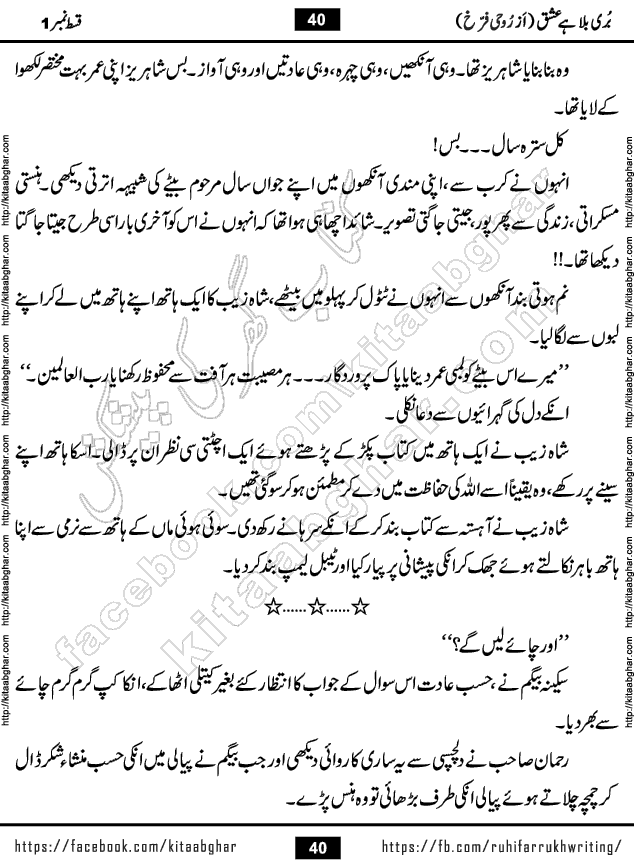 بُری بلا ہے عشق (از رُوحی فرّخ)
40
قسط نمبر 1
وہ بنا بنایا شاہریز تھا۔ وہی آنکھیں، وہی چہرہ، وہی عادتیں اور وہی آواز۔ بس شاہریز اپنی عمر بہت مختصر لکھوا
کے لایا تھا۔
کل سترہ سال ۔۔۔ بس!
انہوں نے کرب سے ، اپنی مندی آنکھوں میں اپنے جواں سال مرحوم بیٹے کی شبیہہ اترتی دیکھی۔ ہنستی
مسکراتی ، زندگی سے بھرپور، جیتی جاگتی تصویر۔ شائد اچھا ہی ہوا تھا کہ انہوں نے اس کو آخری بار اسی طرح جیتا جاگتا
دیکھا تھا۔!!
نم ہوتی بند آنکھوں سے انہوں نے ٹٹول کر پہلو میں بیٹھے، شاہ زیب کا ایک ہاتھ اپنے ہاتھ میں لے کر اپنے
لبوں سے لگا لیا۔
’’میرے اس بیٹے کو لمبی عمر دینا یا پاک پروردگار۔۔۔۔ ہر مصیبت ہر آفت سے محفوظ رکھنا یا رب العالمین۔‘‘
انکے دل کی گہرائیوں سے دعا نکلی ۔
شاہ زیب نے ایک ہاتھ میں کتاب پکڑ کے پڑھتے ہوئے ایک اچٹتی سی نظر ان پر ڈالی۔ اسکا ہاتھ اپنے
سینے پر رکھے، وہ یقیناً اسے اللہ کی حفاظت میں دے کر مطمئن ہو کر سو گئی تھیں۔
شاہ زیب نے آہستہ سے کتاب بند کر کے انکے سرہانے رکھ دی۔ سوئی ہوئی ماں کے ہاتھ سے نرمی سے اپنا
ہاتھ باہر نکالتے ہوئے جھک کر انکی پیشانی پر پیار کیا اور ٹیبل لیمپ بند کر دیا۔
☆......☆......☆
’’اور چائے لیں گے؟‘‘
سکینہ بیگم نے ، حسب عادت اس سوال کے جواب کا انتظار کئے بغیر کیتلی اٹھا کے، انکا کپ گرم گرم چائے
سے بھر دیا۔
رحمان صاحب نے دلچسپی سے یہ ساری کاروائی دیکھی اور جب بیگم نے پیالی میں انکی حسب منشاء شکر ڈال
کر چمچہ چلاتے ہوئے پیالی انکی طرف بڑھائی تو وہ ہنس پڑے۔
http://kitaabghar.com http://kitaabghar.com http://kitaabghar.com http://kitaabghar.com http://kitaabghar.com http://kitaabghar.com
http://kitaabghar.com http://kitaabghar.com http://kitaabghar.com http://kitaabghar.com http://kitaabghar.com http://kitaabghar.com
کتاب گھر کی پیشکش
kitaabghar.com
facebook.com/kitaabghar
https://facebook.com/kitaabghar
40
https://fb.com/ruhifarrukhwriting/